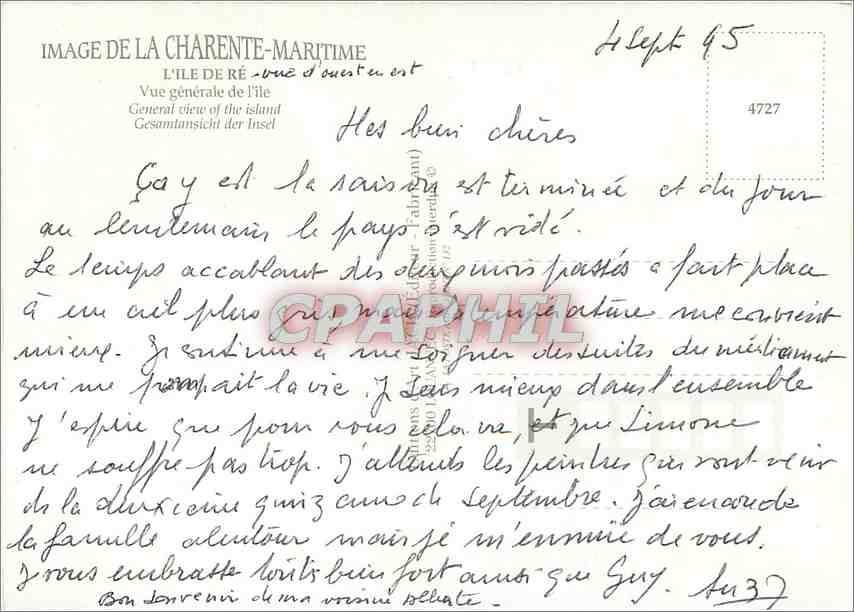 4 Sept 95
IMAGE DE LA CHARENTE-MARITIME
L'ILE DE RÉ - vue d'ouest en est
Vue générale de l'île
General view of the island
Gesamtansicht der Insel
4727
Mes bien chères
Ça y est la saison est terminée et du jour
au lendemain le pays s'est vidé.
Le temps accablant des deux mois passés a fait place
à un ciel plus gris mais la température me convient
mieux. Je continue à me soigner des suites du médicament
qui me pompait la vie. Je suis mieux dans l'ensemble
J'espère que pour vous cela va, et que Simone
ne souffre pas trop. J'attends les peintres qui vont venir
de la deuxième quinzaine de Septembre. J'ai encore de
la famille alentour mais je m'ennuie de vous.
Je vous embrasse toutes bien fort ainsi que Guy.
Bon souvenir de ma voisine
CPAPHIL